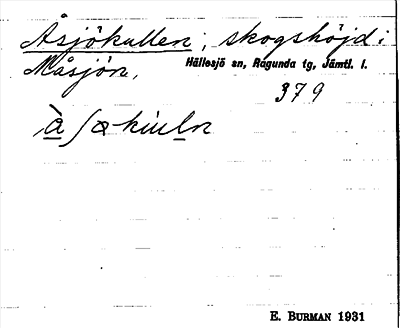 Åsjökullen; skogshöjd i
Måsjön, Hällesjö sn, Ragunda tg, Jämtl. l.
379
E. BURMAN 1931